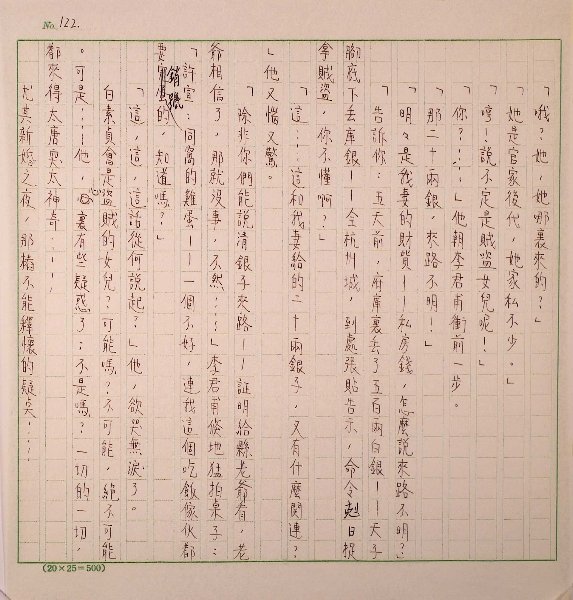 No. 122.
「哦？她，她哪裏來的？」
「她是官家後代，她家私不少。」
「哼！說不定是賊盜女兒呢！」
「你？……」他朝李君甫衝前一步。
「那二十兩銀，來路不明！」
「明々是我妻的財貨——私房錢，怎麼說來路不明？」
「告訴你：五天前，府庫裏丟了五百兩白銀——天子
腳底下丟庫銀——全杭州城，到處張貼告示，命令剋日捉
拿賊盜，你不懂啊？」
「這……這和我妻給的二十兩銀子，又有什麼関連？
」他又惱又驚。
「除非你們能說清銀子來路——証明給縣老爺看，老
爺相信了，那就沒事，不然……」李君甫倏地猛拍桌子：
「許宣：同窩的雞蛋——一個不好，連我這個吃飯傢伙都
要銷號的，知道嗎？」
「這，這，這話從何說起？」他，欲哭無淚了。
白素貞會是盜賊的女兒？可能嗎？不可能，絕不可能
。可是……他，心裏有些疑惑了：不是嗎？一切的一切，
都來得太唐突太神奇……
尤其新婚之夜，那樁不能釋懷的疑臭……
(20×25=500)